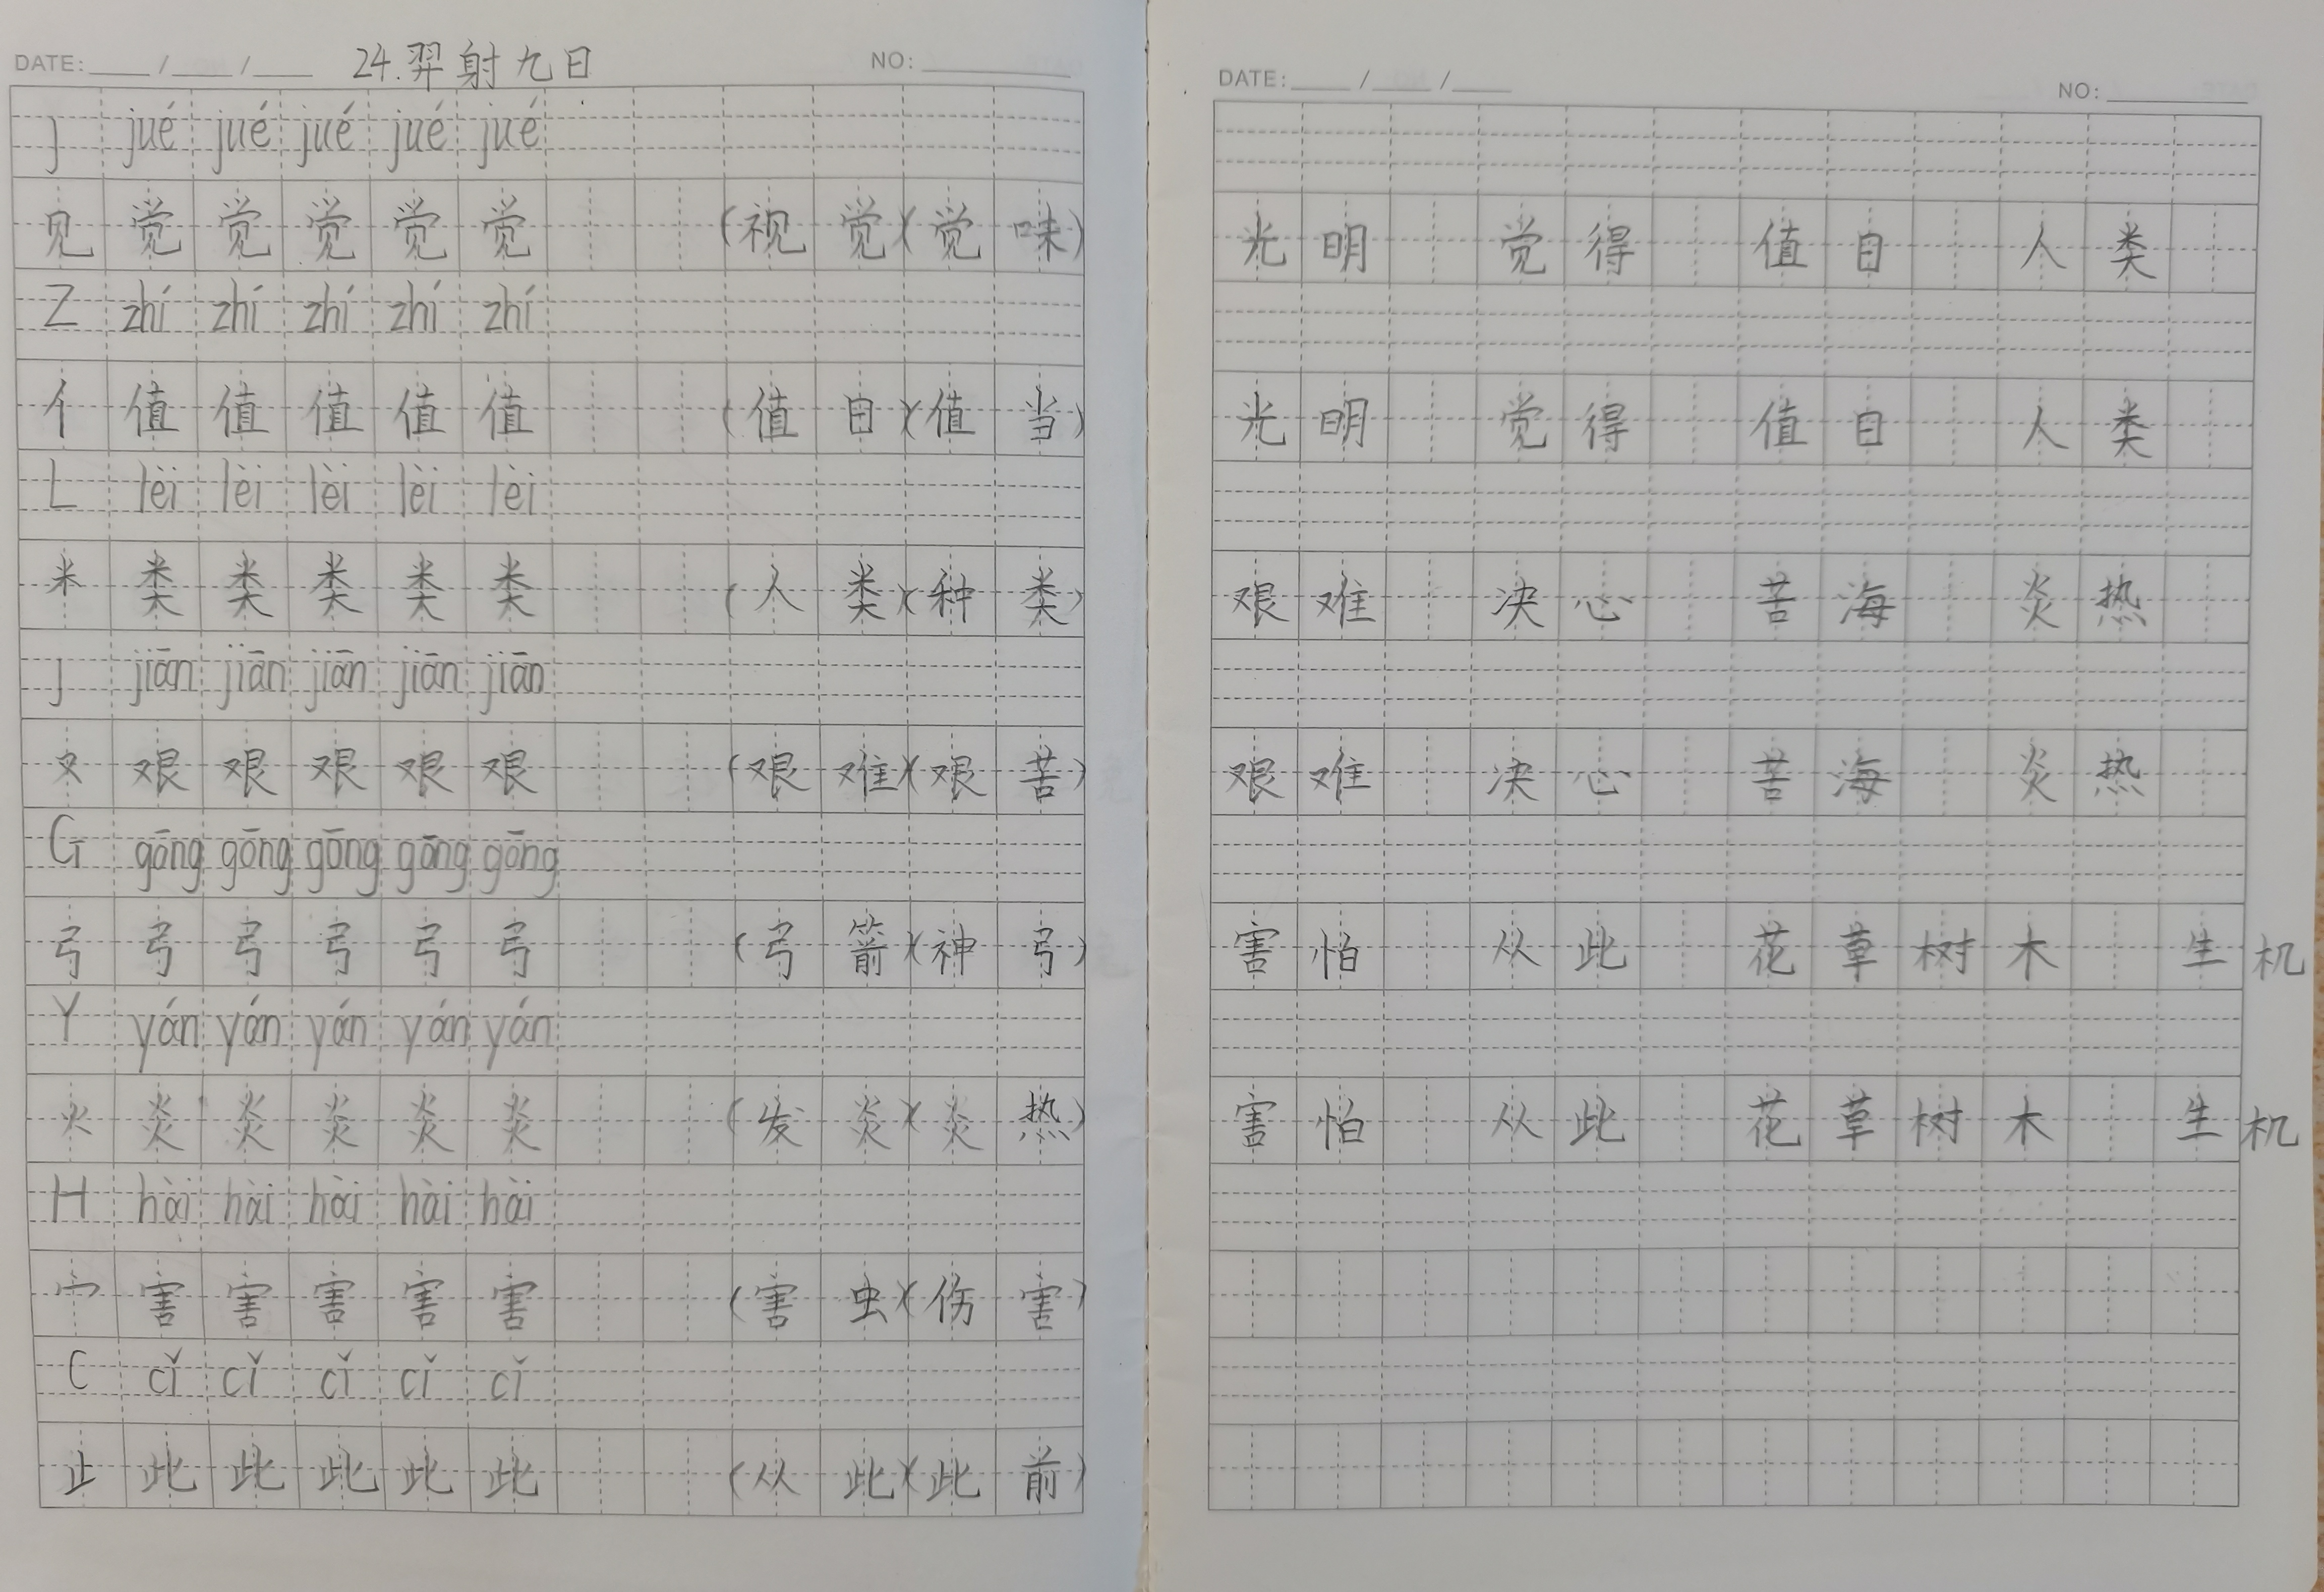 DATE: / / 24.羿射九日 NO:
J jué jué jué jué jué
见 觉 觉 觉 觉 觉 (视觉)(觉味)
Z zhí zhí zhí zhí zhí
亻 值 值 值 值 值 (值日)(值当)
L lèi lèi lèi lèi lèi
米 类 类 类 类 类 (人类)(种类)
J jiān jiān jiān jiān jiān
又 艰 艰 艰 艰 艰 (艰难)(艰苦)
G gōng gōng gōng gōng gōng
弓 弓 弓 弓 弓 弓 (弓箭)(神弓)
Y yán yán yán yán yán
火 炎 炎 炎 炎 炎 (发炎)(炎热)
H hài hài hài hài hài
宀 害 害 害 害 害 (害虫)(伤害)
C cǐ cǐ cǐ cǐ cǐ
止 此 此 此 此 此 (从此)(此前)
DATE: / / NO:
光明 觉得 值日 人类
光明 觉得 值日 人类
艰难 决心 苦海 炎热
艰难 决心 苦海 炎热
害怕 从此 花草树木 生机
害怕 从此 花草树木 生机